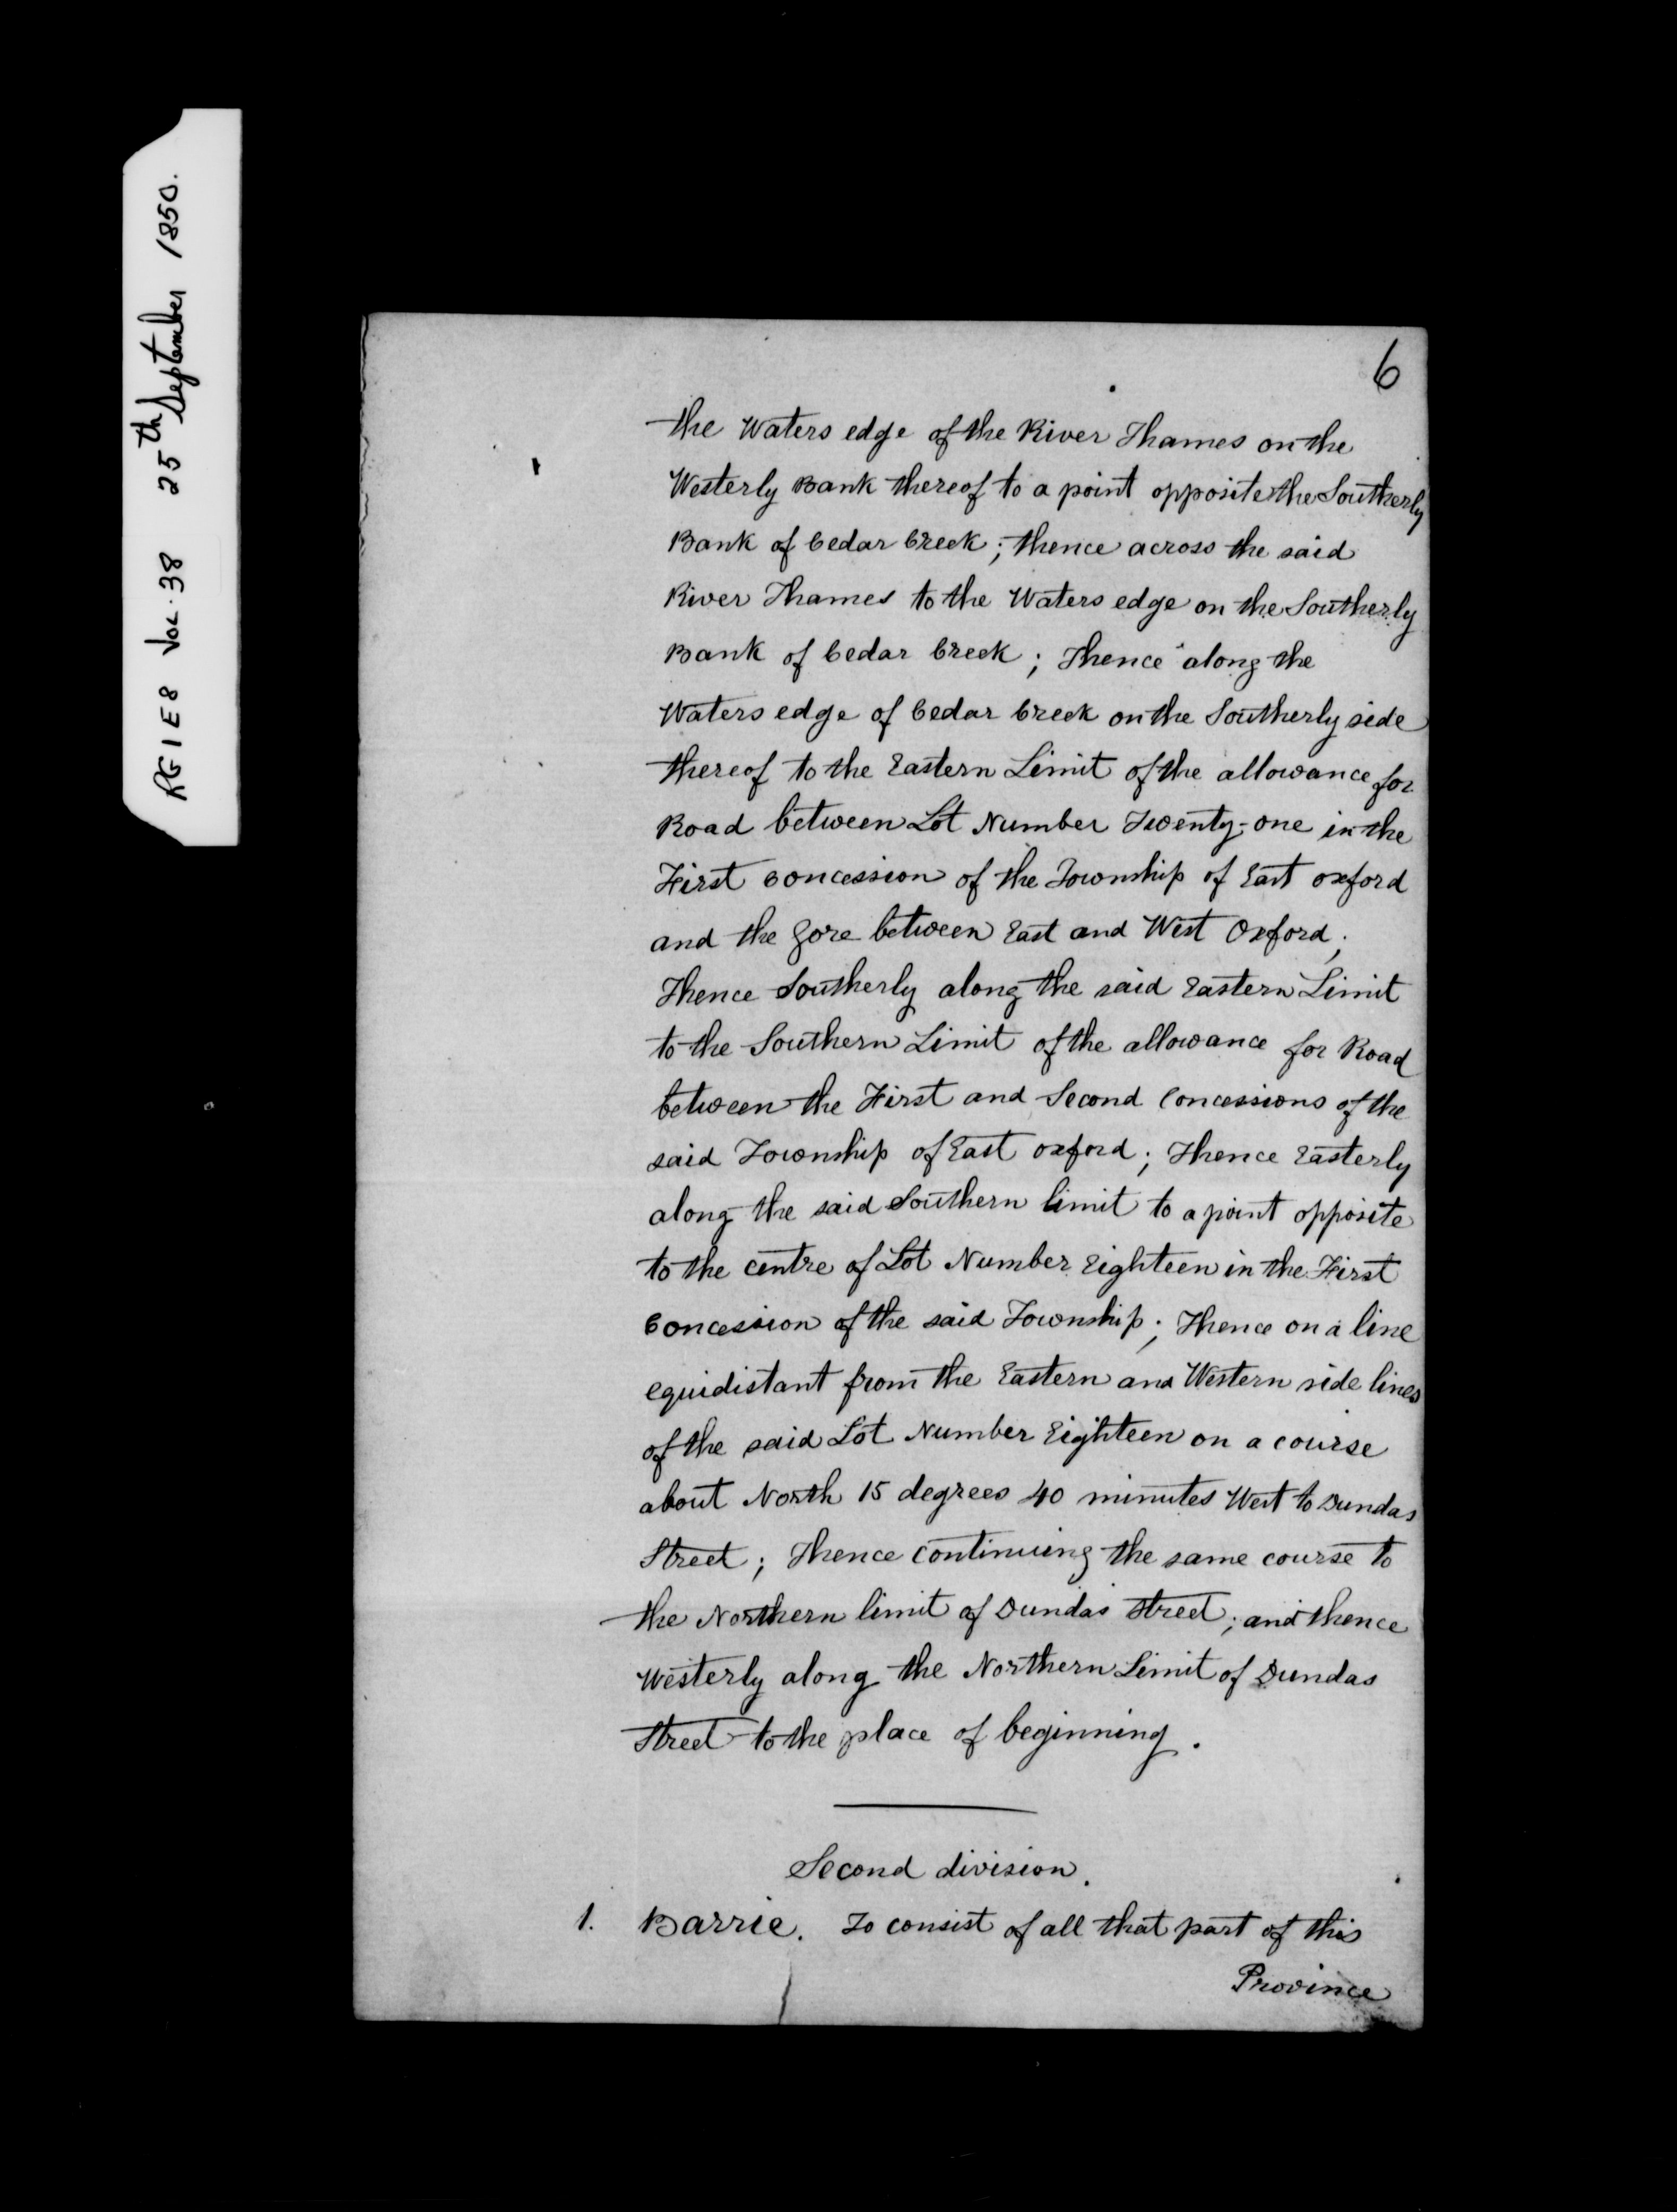 RG1E8 Vol. 38 25th September 1850.
6
the Waters edge of the River Thames on the
Westerly Bank thereof to a point opposite the Southerly
Bank of Cedar Creek; thence across the said
River Thames to the Waters edge on the Southerly
Bank of Cedar Creek; Thence along the
Waters edge of Cedar Creek on the Southerly side
thereof to the Eastern Limit of the allowance for
Road between Lot Number Twenty-one in the
First Concession of the Township of East Oxford
and the Gore between East and West Oxford;
Thence Southerly along the said Eastern Limit
to the Southern Limit of the allowance for Road
between the First and Second Concessions of the
said Township of East Oxford; Thence Easterly
along the said Southern limit to a point opposite
to the centre of Lot Number Eighteen in the First
Concession of the said Township; Thence on a line
equidistant from the Eastern and Western side lines
of the said Lot Number Eighteen on a course
about North 15 degrees 40 minutes West to Dundas
Street; Thence continuing the same course to
the Northern limit of Dundas Street; and thence
Westerly along the Northern Limit of Dundas
Street to the place of beginning.
Second division.
1. Barrie. To consist of all that part of this
Province